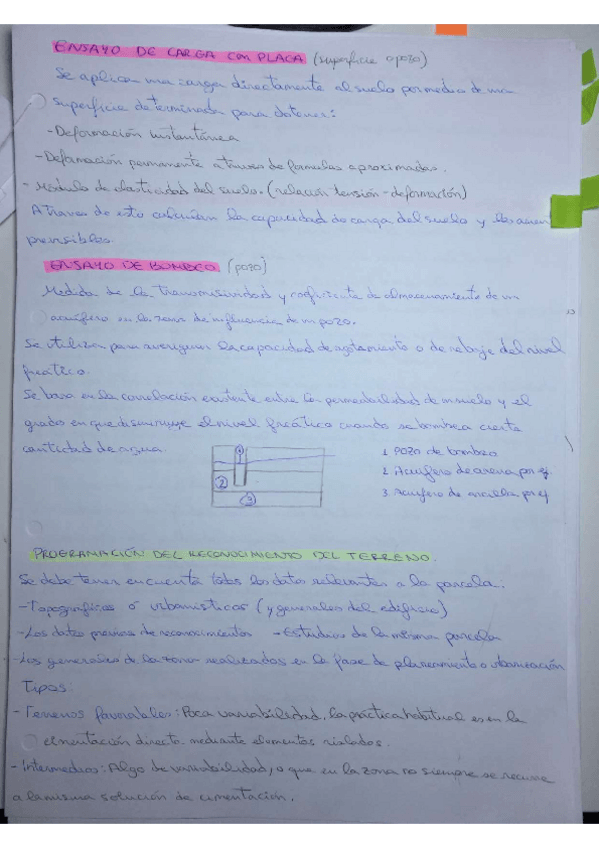 ENSAYO DE CARGA CON PLACA (superficie o pozo)
Se aplica una carga directamente al suelo por medio de una
superficie determinada para obtener:
- Deformación instantánea
- Deformación permanente a traves de formulas aproximadas.
- Módulo de elasticidad del suelo. (relación tensión - deformación)
A traves de esto calculan la capacidad de carga del suelo y
previsibles.
ENSAYO DE BOMBEO (pozo)
Medida de la transmisividad y coeficiente de almacenamiento de un
acuífero en la zona de influencia de un pozo.
Se utiliza para averiguar la capacidad de agotamiento o de rebaje del nivel
freático.
Se basa en la correlación existente entre la permeabilidad de un suelo y el
grado en que disminuye el nivel freático cuando se bombea cierta
cantidad de agua.
1
2
3
1 Pozo de bombeo
2 Acuífero de arena por ej
3 Acuífero de arcilla por ej
PROGRAMACIÓN DEL RECONOCIMIENTO DEL TERRENO.
Se debe tener en cuenta todos los datos relevantes a la parcela:
- Topográficos ó urbanísticos (y generales del edificio)
- Los datos previos de reconocimientos - Estudios de la misma parcela
- Los generales de la zona realizados en la fase de planeamiento o urbanización
Tipos:
- Terrenos favorables: Poca variabilidad, la práctica habitual es en la
cimentación directa mediante elementos aislados.
- Intermedios: Algo de variabilidad, o que en la zona no siempre se recurre
a la misma solución de cimentación.